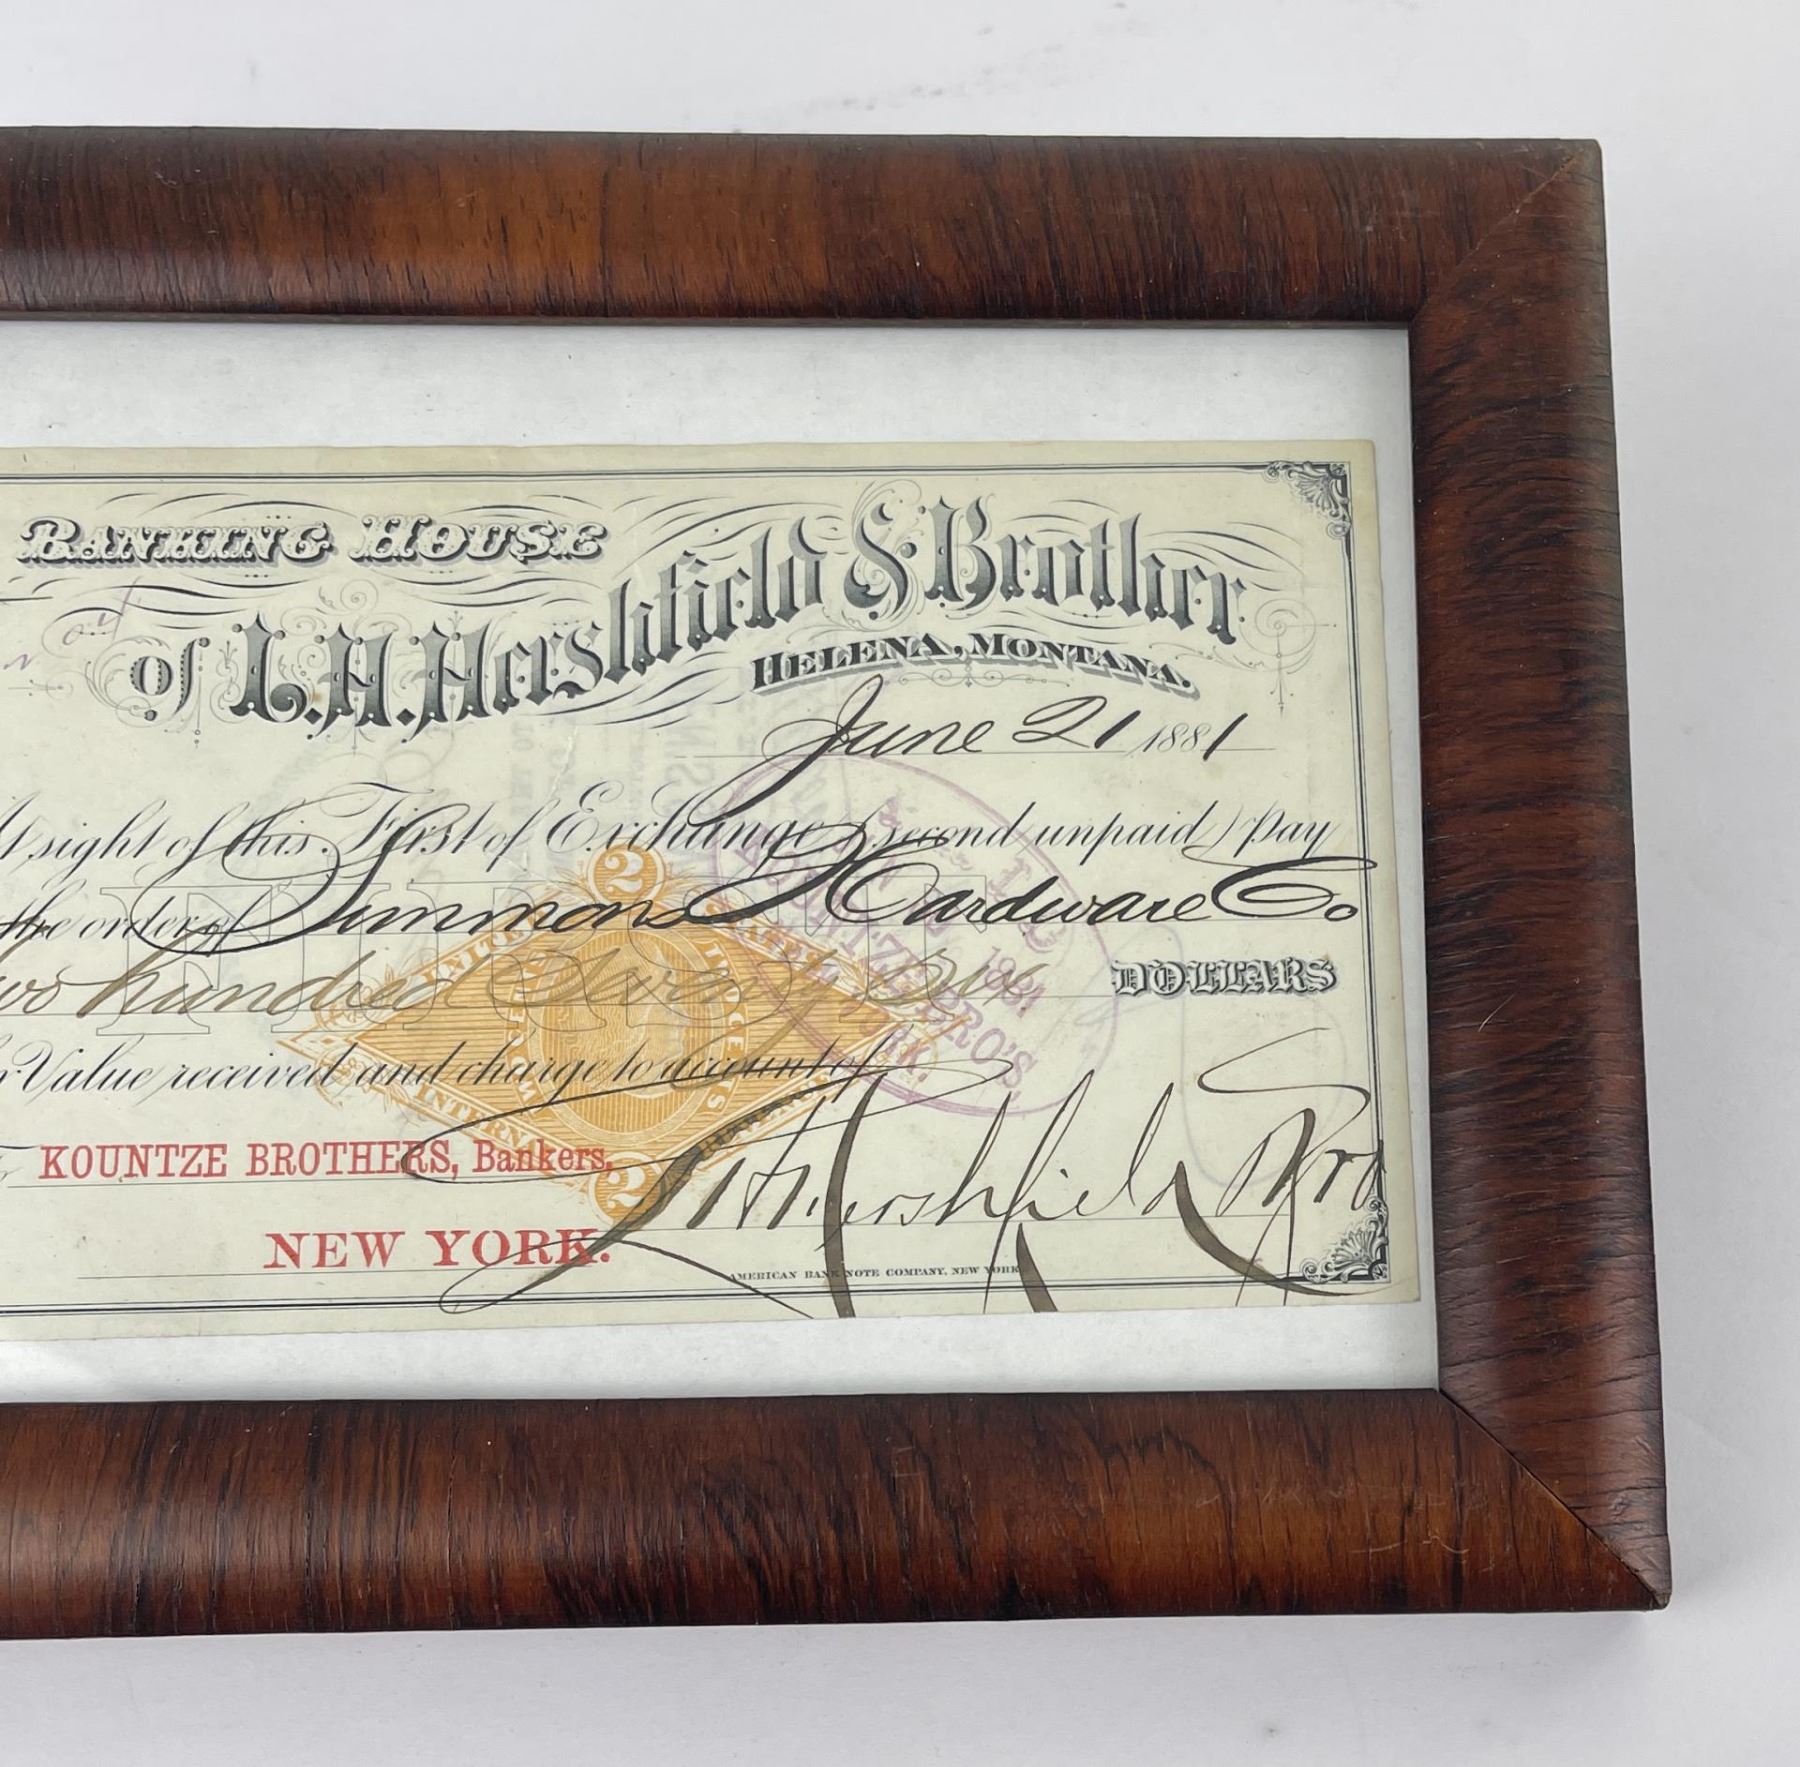 BANKING HOUSE
of L.H. Hershfield & Brother
HELENA, MONTANA.
June 21 1881
At sight of this First of Exchange (second unpaid) Pay
the order of Simmons Hardware Co
Two hundred Seventy Six DOLLARS
Value received and charge to account of
KOUNTZE BROTHERS, Bankers,
NEW YORK.
L H Hershfield & Bro
AMERICAN BANK NOTE COMPANY, NEW YORK
FIRST
2
UNITED
INTERNAL
2
1881
KOUNTZE BRO'S